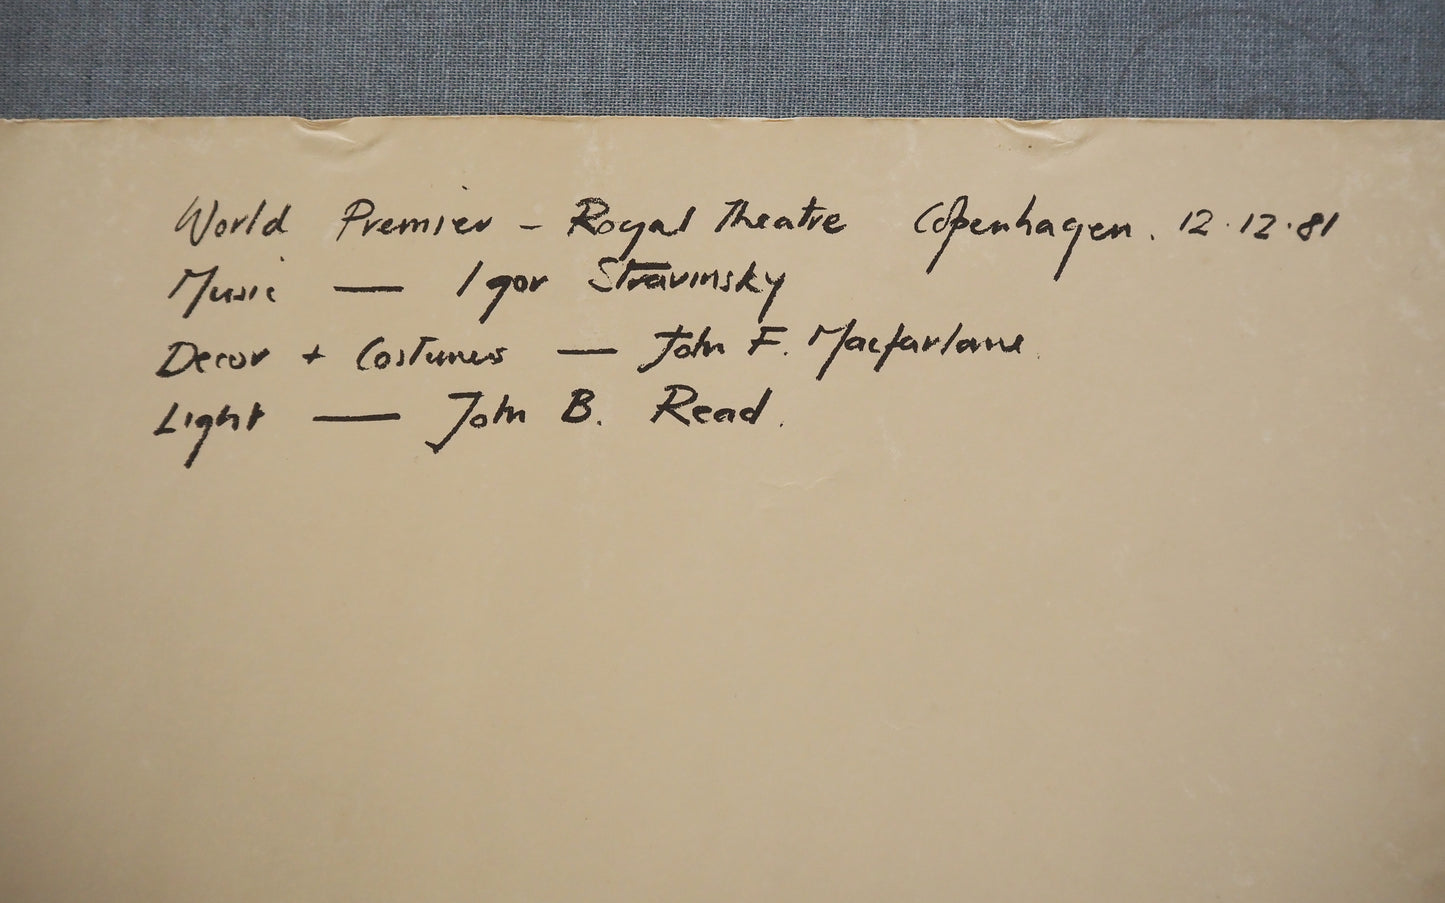 World Premier – Royal Theatre Copenhagen. 12.12.81
Music — Igor Stravinsky
Decor + Costumes — John F. Macfarlane.
Light — John B. Read.